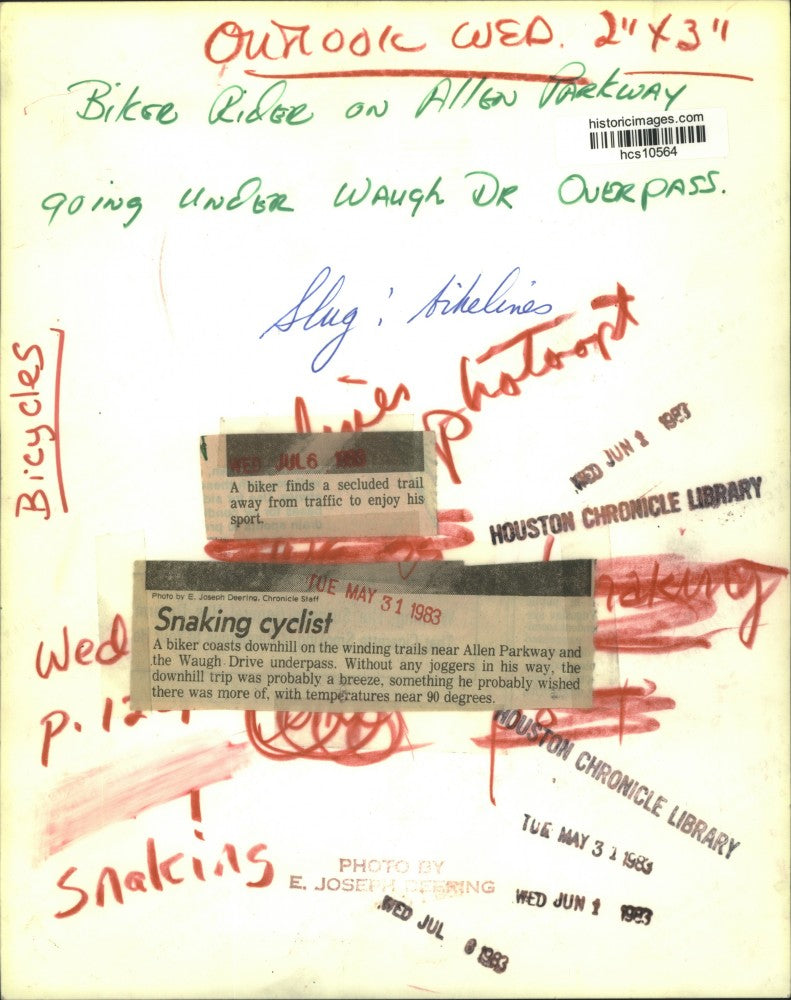 OUTLOOK WED. 2" X 3"
BIKER RIDER ON ALLEN PARKWAY
historicimages.com
hcs10564
going UNDER WAUGH DR OVERPASS.
Slug: bikelines
photoopt
Bicycles
WED JUN 1 1983
HOUSTON CHRONICLE LIBRARY
WED JUL 6 1983
A biker finds a secluded trail
away from traffic to enjoy his
sport.
TUE MAY 31 1983
Photo by E. Joseph Deering, Chronicle Staff
Snaking cyclist
A biker coasts downhill on the winding trails near Allen Parkway and
the Waugh Drive underpass. Without any joggers in his way, the
downhill trip was probably a breeze, something he probably wished
there was more of, with temperatures near 90 degrees.
Wed
p. 12
HOUSTON CHRONICLE LIBRARY
TUE MAY 31 1983
Snaking
PHOTO BY
E. JOSEPH DEERING
WED JUN 1 1983
WED JUL 6 1983